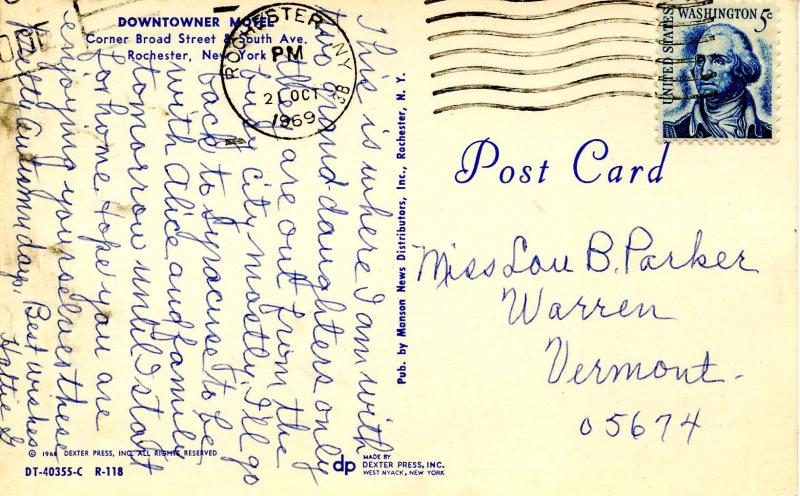 DOWNTOWNER MOTEL
Corner Broad Street & South Ave.
Rochester, New York
ROCHESTER, N.Y.
PM
2 OCT
1969
UNITED STATES
WASHINGTON 5c
Post Card
This is where I am with
two grand daughters only
all are out from the
busy city mostly. I'll go
back to Syracuse to be
with Alice and family
tomorrow until I start
for home. Hope you are
enjoying yourselves these
pretty autumn days. Best wishes
Hattie G
Miss Lou B. Parker
Warren
Vermont.
05674
Pub. by Manson News Distributors, Inc., Rochester, N. Y.
© 1968 DEXTER PRESS, INC. ALL RIGHTS RESERVED
DT-40355-C R-118
dp MADE BY
DEXTER PRESS, INC.
WEST NYACK, NEW YORK